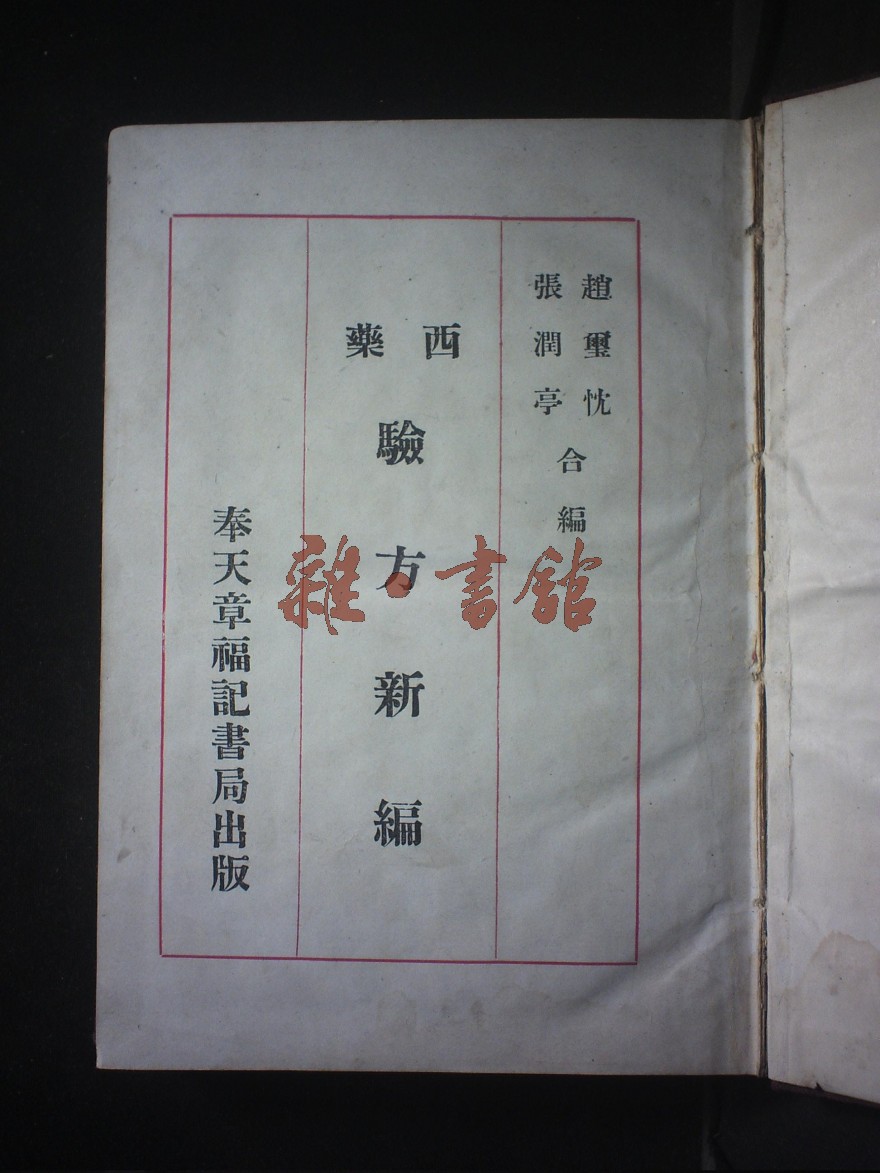 趙璽忱
張潤亭
合編
西藥
驗方新編
奉天章福記書局出版
雜·書館